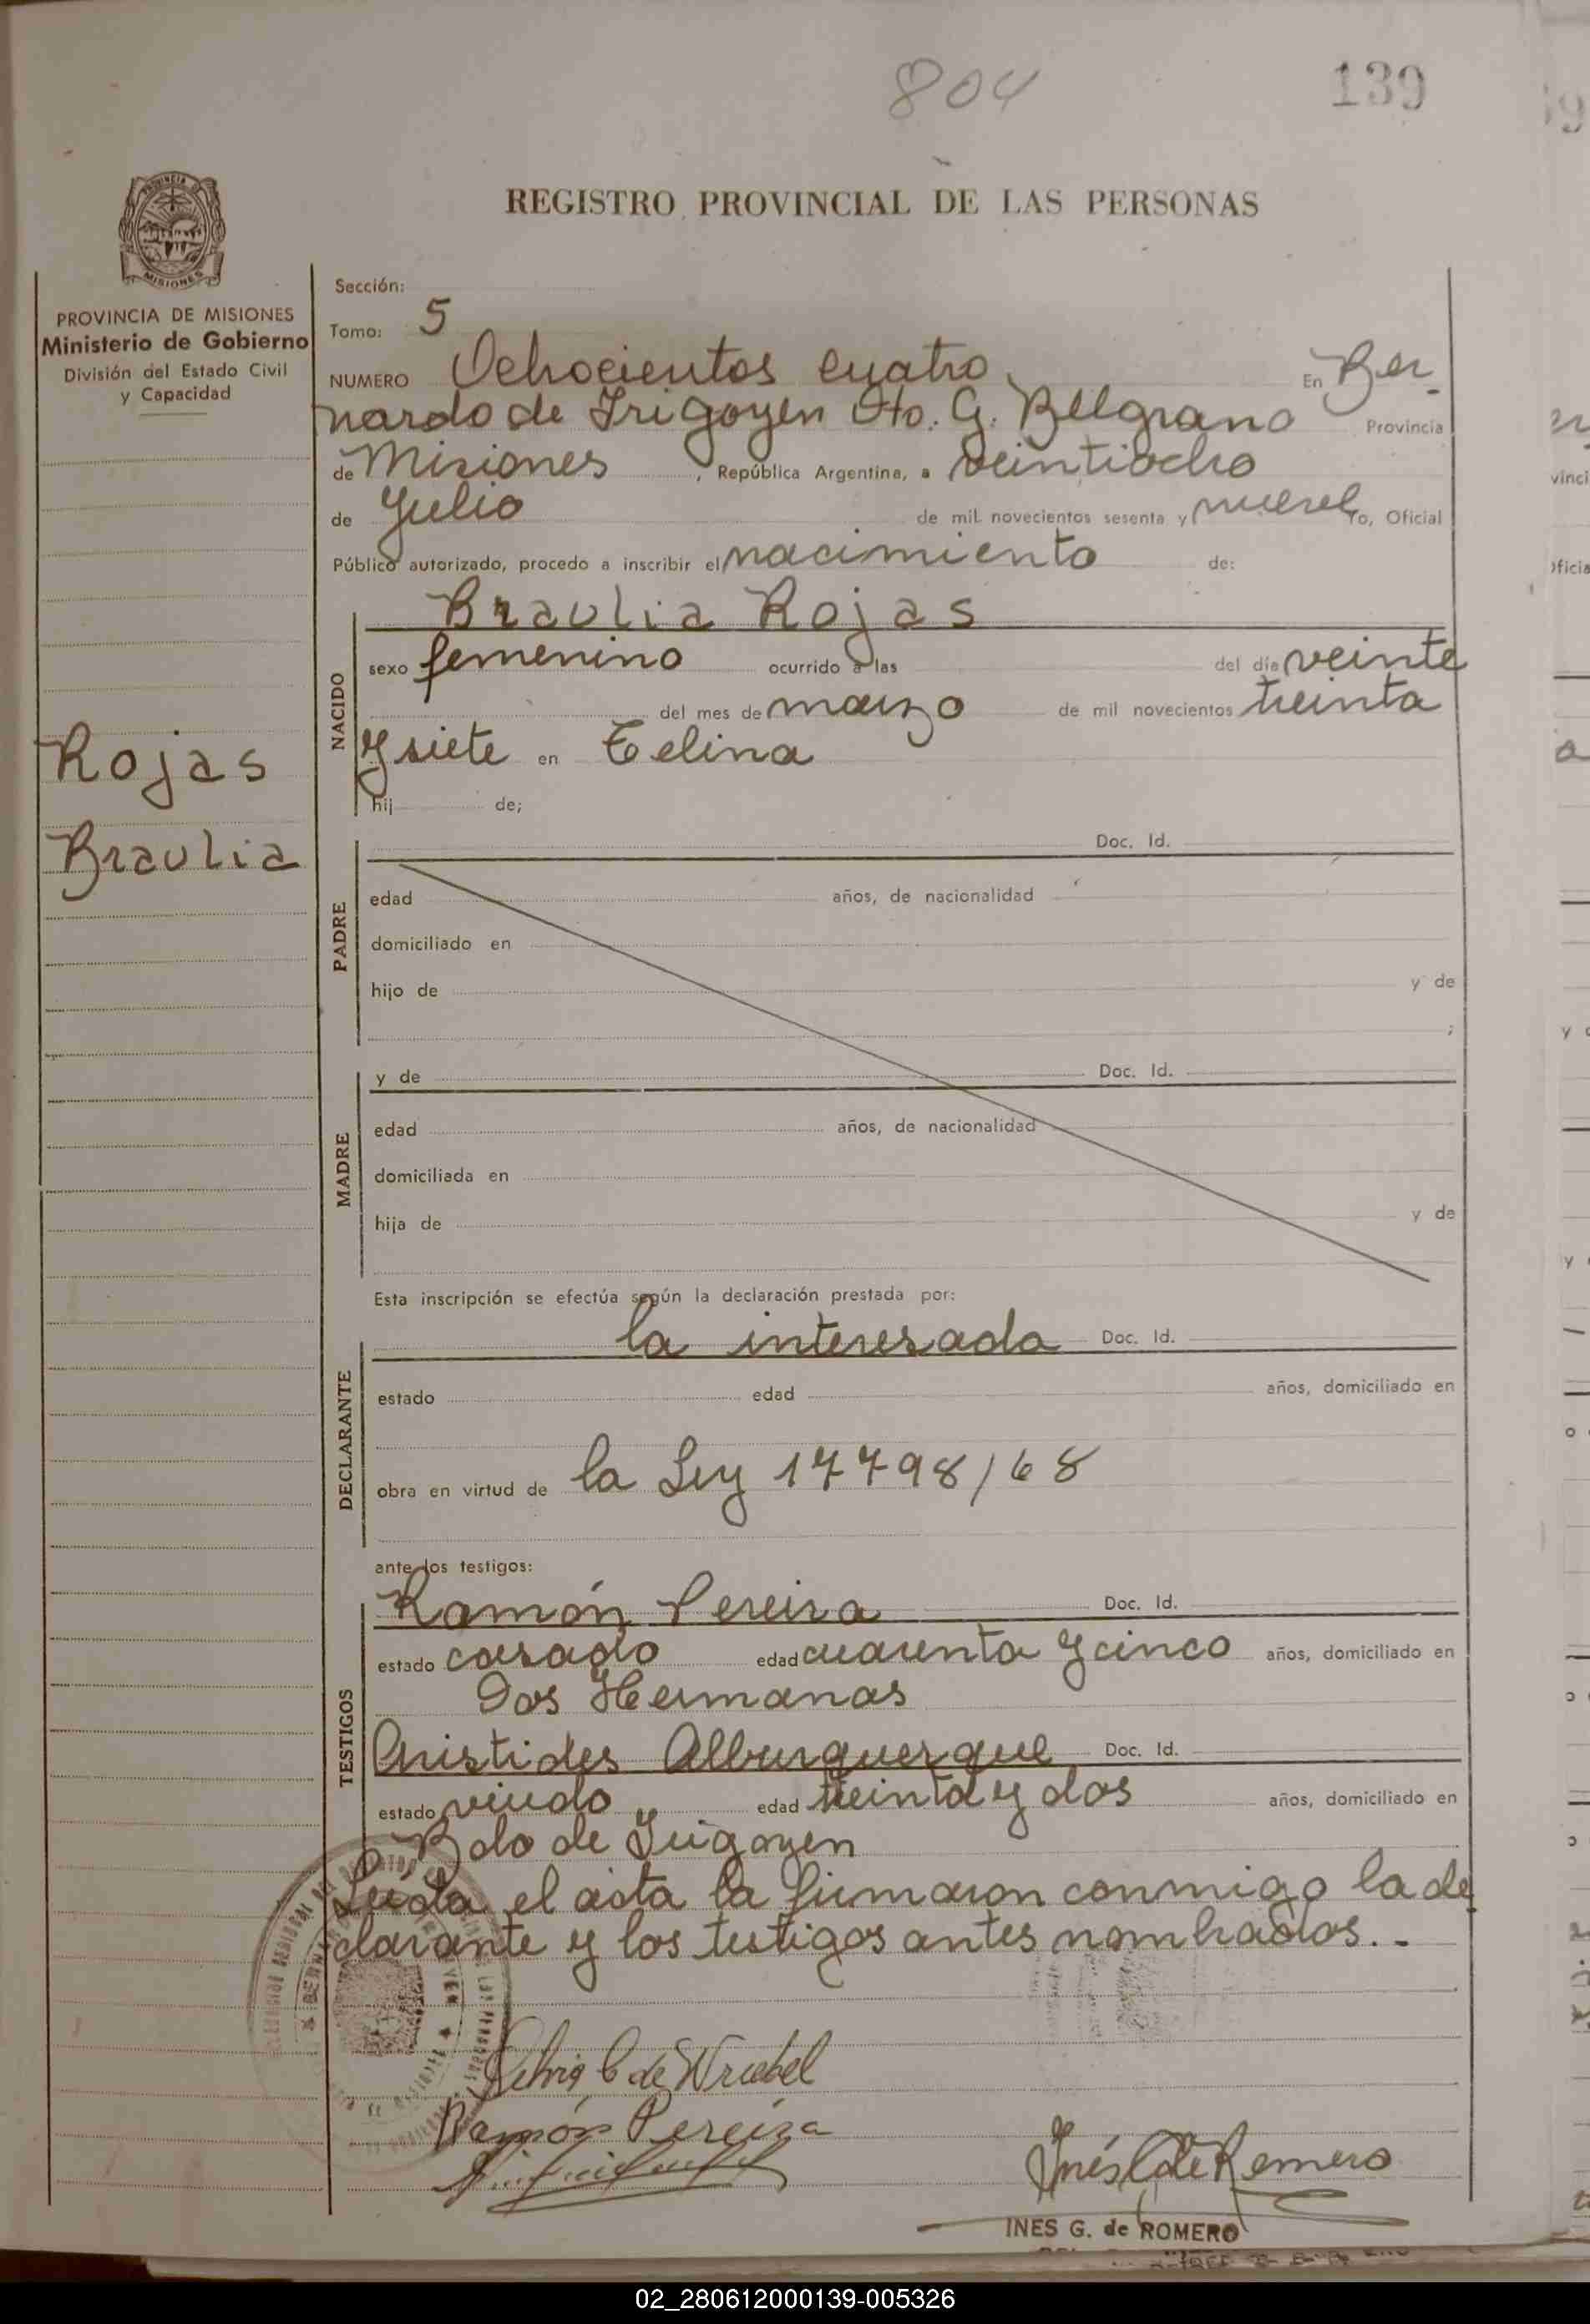 804
139
REGISTRO PROVINCIAL DE LAS PERSONAS
PROVINCIA DE
MISIONES
PROVINCIA DE MISIONES
Ministerio de Gobierno
División del Estado Civil
y Capacidad
Rojas
Braulia
Sección:
Tomo: 5
NUMERO Ochocientos cuatro. En Ber-
nardo de Irigoyen Dto. G. Belgrano Provincia
de Misiones, República Argentina, a veintiocho
de Julio de mil novecientos sesenta y nueve Yo, Oficial
Público autorizado, procedo a inscribir el nacimiento de:
Braulia Rojas
NACIDO
sexo femenino ocurrido a las del día veinte
del mes de marzo de mil novecientos treinta
y siete en Celina
hij de;
Doc. Id.
PADRE
edad años, de nacionalidad
domiciliado en
hijo de y de
;
MADRE
y de Doc. Id.
edad años, de nacionalidad
domiciliada en
hija de y de
Esta inscripción se efectúa según la declaración prestada por:
la interesada Doc. Id.
DECLARANTE
estado edad años, domiciliado en
obra en virtud de la Ley 17798/68
ante los testigos:
TESTIGOS
Ramón Pereira Doc. Id.
estado casado edad cuarenta y cinco años, domiciliado en
Dos Hermanas
Aristides Alburquerque Doc. Id.
estado viudo edad treinta y dos años, domiciliado en
Bdo de Irigoyen
Leída el acta la firmaron conmigo la de
clarante y los testigos antes nombrados.-
de Wrubel
Ramón Pereira
Inés G de Romero
INES G. de ROMERO
02_280612000139-005326